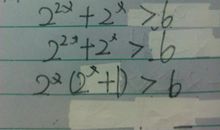 2^{2x} + 2^x > 6
2^{2x} + 2^x > 6
2^x (2^x + 1) > 6